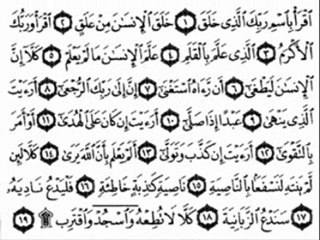 ٱقْرَأْ بِٱسْمِ رَبِّكَ ٱلَّذِى خَلَقَ ١ خَلَقَ ٱلْإِنسَٰنَ مِنْ عَلَقٍ ٢ ٱقْرَأْ وَرَبُّكَ
ٱلْأَكْرَمُ ٣ ٱلَّذِى عَلَّمَ بِٱلْقَلَمِ ٤ عَلَّمَ ٱلْإِنسَٰنَ مَا لَمْ يَعْلَمْ ٥ كَلَّآ إِنَّ
ٱلْإِنسَٰنَ لَيَطْغَىٰٓ ٦ أَن رَّءَاهُ ٱسْتَغْنَىٰٓ ٧ إِنَّ إِلَىٰ رَبِّكَ ٱلرُّجْعَىٰٓ ٨ أَرَءَيْتَ
ٱلَّذِى يَنْهَىٰ ٩ عَبْدًا إِذَا صَلَّىٰٓ ١٠ أَرَءَيْتَ إِن كَانَ عَلَى ٱلْهُدَىٰٓ ١١ أَوْ أَمَرَ
بِٱلتَّقْوَىٰٓ ١٢ أَرَءَيْتَ إِن كَذَّبَ وَتَوَلَّىٰٓ ١٣ أَلَمْ يَعْلَم بِأَنَّ ٱللَّهَ يَرَىٰ ١٤ كَلَّا لَئِن
لَّمْ يَنتَهِ لَنَسْفَعًۢا بِٱلنَّاصِيَةِ ١٥ نَاصِيَةٍ كَٰذِبَةٍ خَاطِئَةٍ ١٦ فَلْيَدْعُ نَادِيَهُۥ
١٧ سَنَدْعُ ٱلزَّبَانِيَةَ ١٨ كَلَّا لَا تُطِعْهُ وَٱسْجُدْ وَٱقْتَرِب ۩ ١٩